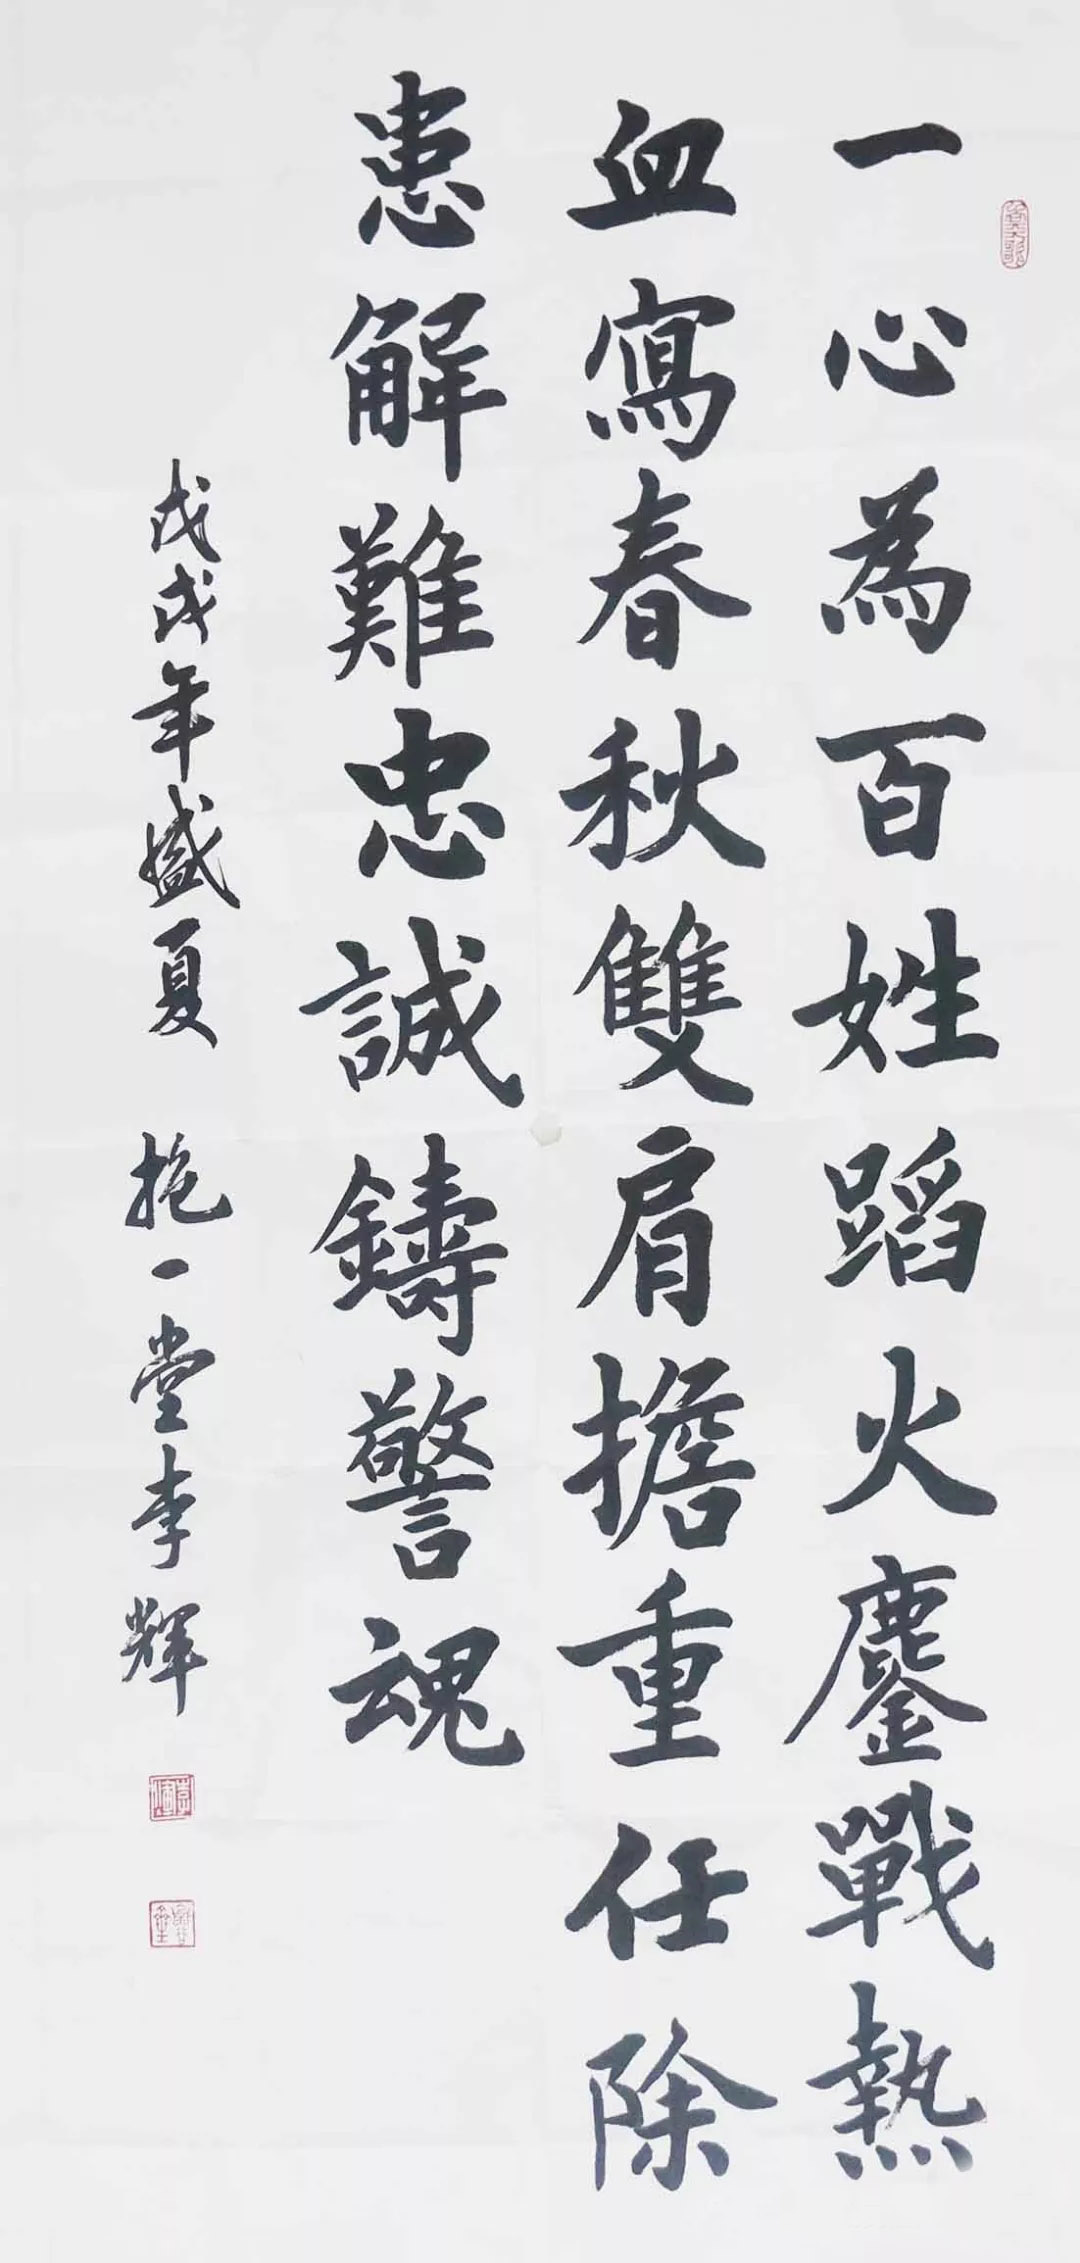 一心為百姓蹈火鏖戰熱
血寫春秋雙肩擔重任除
患解難忠誠鑄警魂
戊戌年盛夏 抱一堂李輝